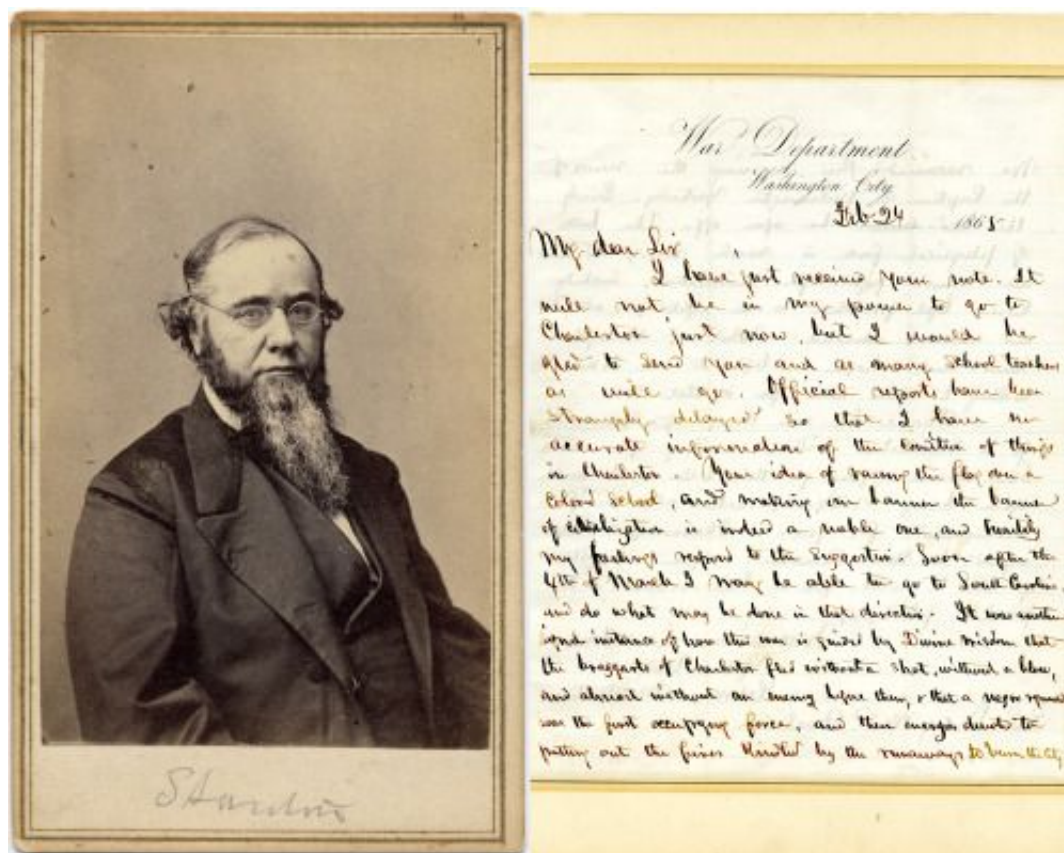 Stanton
War Department
Washington City
Feb 24 1865
My dear Sir
I have just received your note. It
will not be in my power to go to
Charleston just now, but I would be
glad to send you and as many school teachers
as will go. Official reports have been
strangely delayed so that I have no
accurate information of the condition of things
in Charleston. Your idea of raising the flag over a
Colored School, and making our banner the banner
of civilization is indeed a noble one, and heartily
my feelings respond to the suggestion. Soon after the
4th of March I may be able to go to South Carolina
and do what may be done in that direction. It was another
signal instance of how this war is guided by Divine wisdom that
the braggarts of Charleston fled without a shot, without a blow,
and almost without an enemy before them, & that a negro
was the first occupying force, and their energies devoted to
putting out the fires kindled by the runaways to burn the city